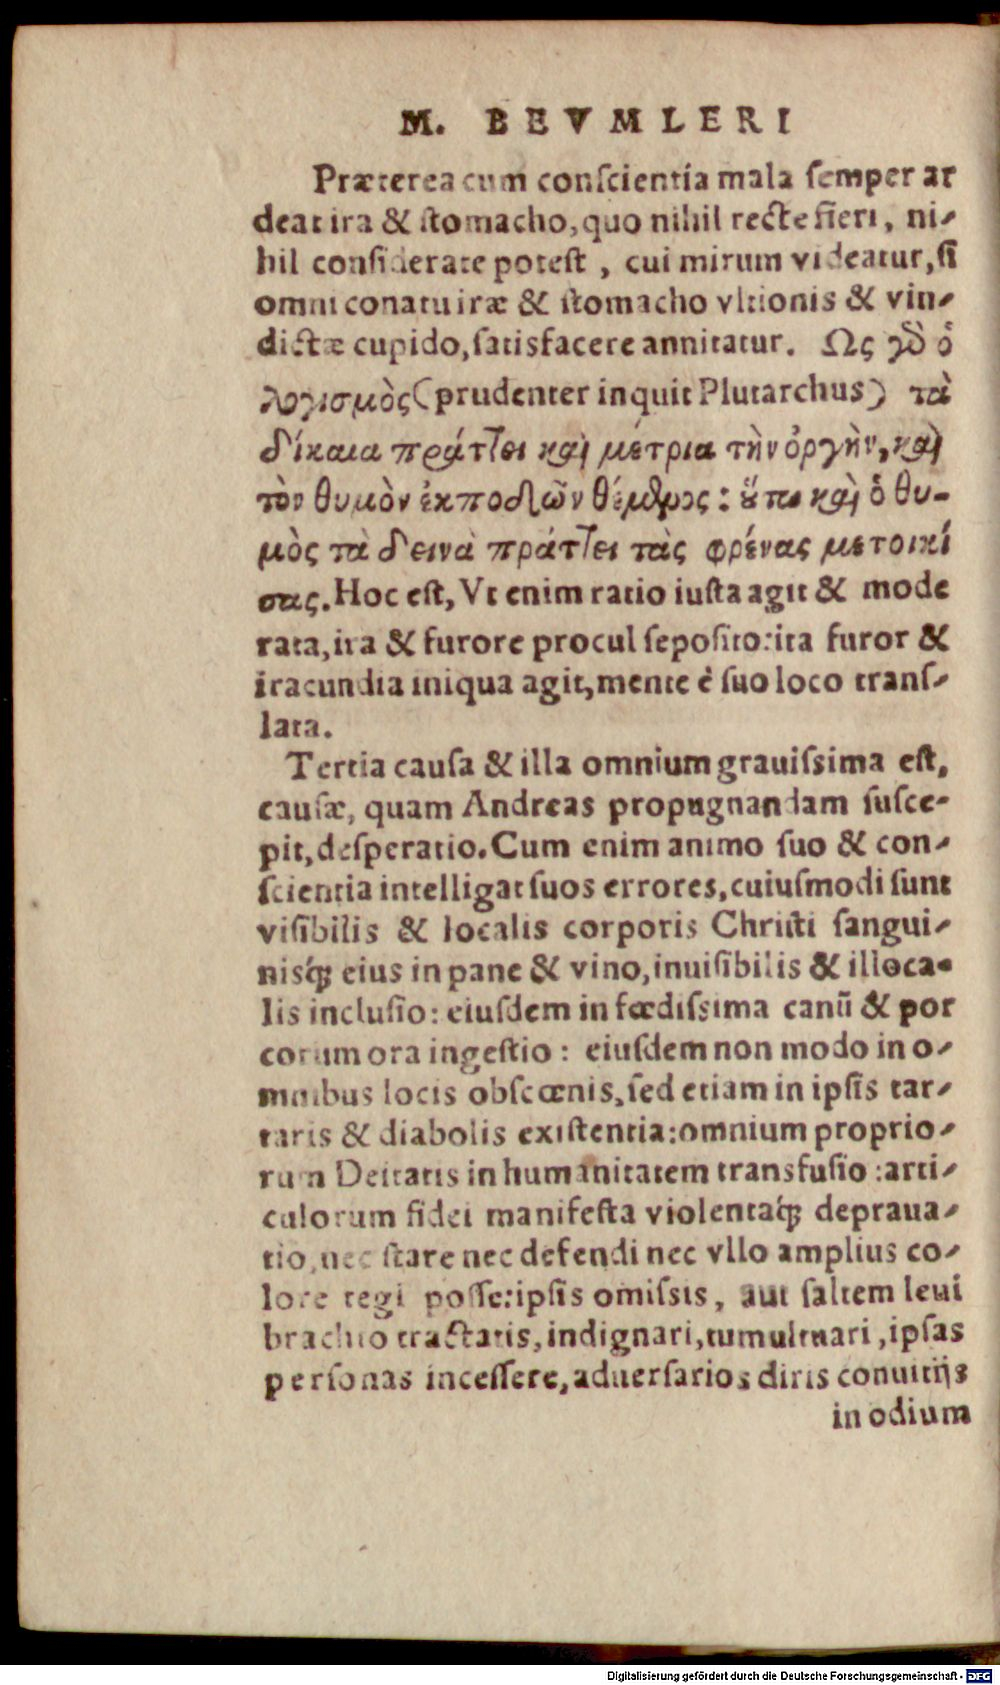 M. BEVMLERI
Præterea cum conſcientia mala ſemper ar
deat ira & ſtomacho, quo nihil recte fieri, ni-
hil conſiderate poteſt, cui mirum videatur, ſi
omni conatu iræ & ſtomacho vltionis & vin-
dictæ cupido, ſatisfacere annitatur. Ως γδ ὁ
λογισμὸς (prudenter inquit Plutarchus) τὰ
δίκαια πράττει καὶ μέτρια τὴν ὀργὴν, καὶ
τὸν θυμὸν ἐκποδὼν θέμενος: οὕτω καὶ ὁ θυ-
μὸς τὰ δεινὰ πράττει τὰς φρένας μετοικί
σας. Hoc eſt, Vt enim ratio iuſta agit & mode
rata, ira & furore procul ſepoſito: ita furor &
iracundia iniqua agit, mente è ſuo loco tranſ-
lata.
Tertia cauſa & illa omnium grauiſsima eſt,
cauſæ, quam Andreas propugnandam ſuſce-
pit, deſperatio. Cum enim animo ſuo & con-
ſcientia intelligat ſuos errores, cuiuſmodi ſunt
viſibilis & localis corporis Chriſti ſangui-
nisq́ꝫ eius in pane & vino, inuiſibilis & illoca-
lis incluſio: eiuſdem in fœdiſsima canũ & por
corum ora ingeſtio: eiuſdem non modo in o-
mnibus locis obſcœnis, ſed etiam in ipſis tar-
taris & diabolis exiſtentia: omnium proprio-
rum Deitatis in humanitatem transfuſio: arti-
culorum fidei manifeſta violentaq́ꝫ depraua-
tio, nec ſtare nec defendi nec vllo amplius co-
lore tegi poſſe: ipſis omiſsis, aut ſaltem leui
brachio tractatis, indignari, tumultuari, ipſas
perſonas inceſſere, aduerſarios diris conuitijs
in odium
Digitalisierung gefördert durch die Deutsche Forschungsgemeinschaft - DFG